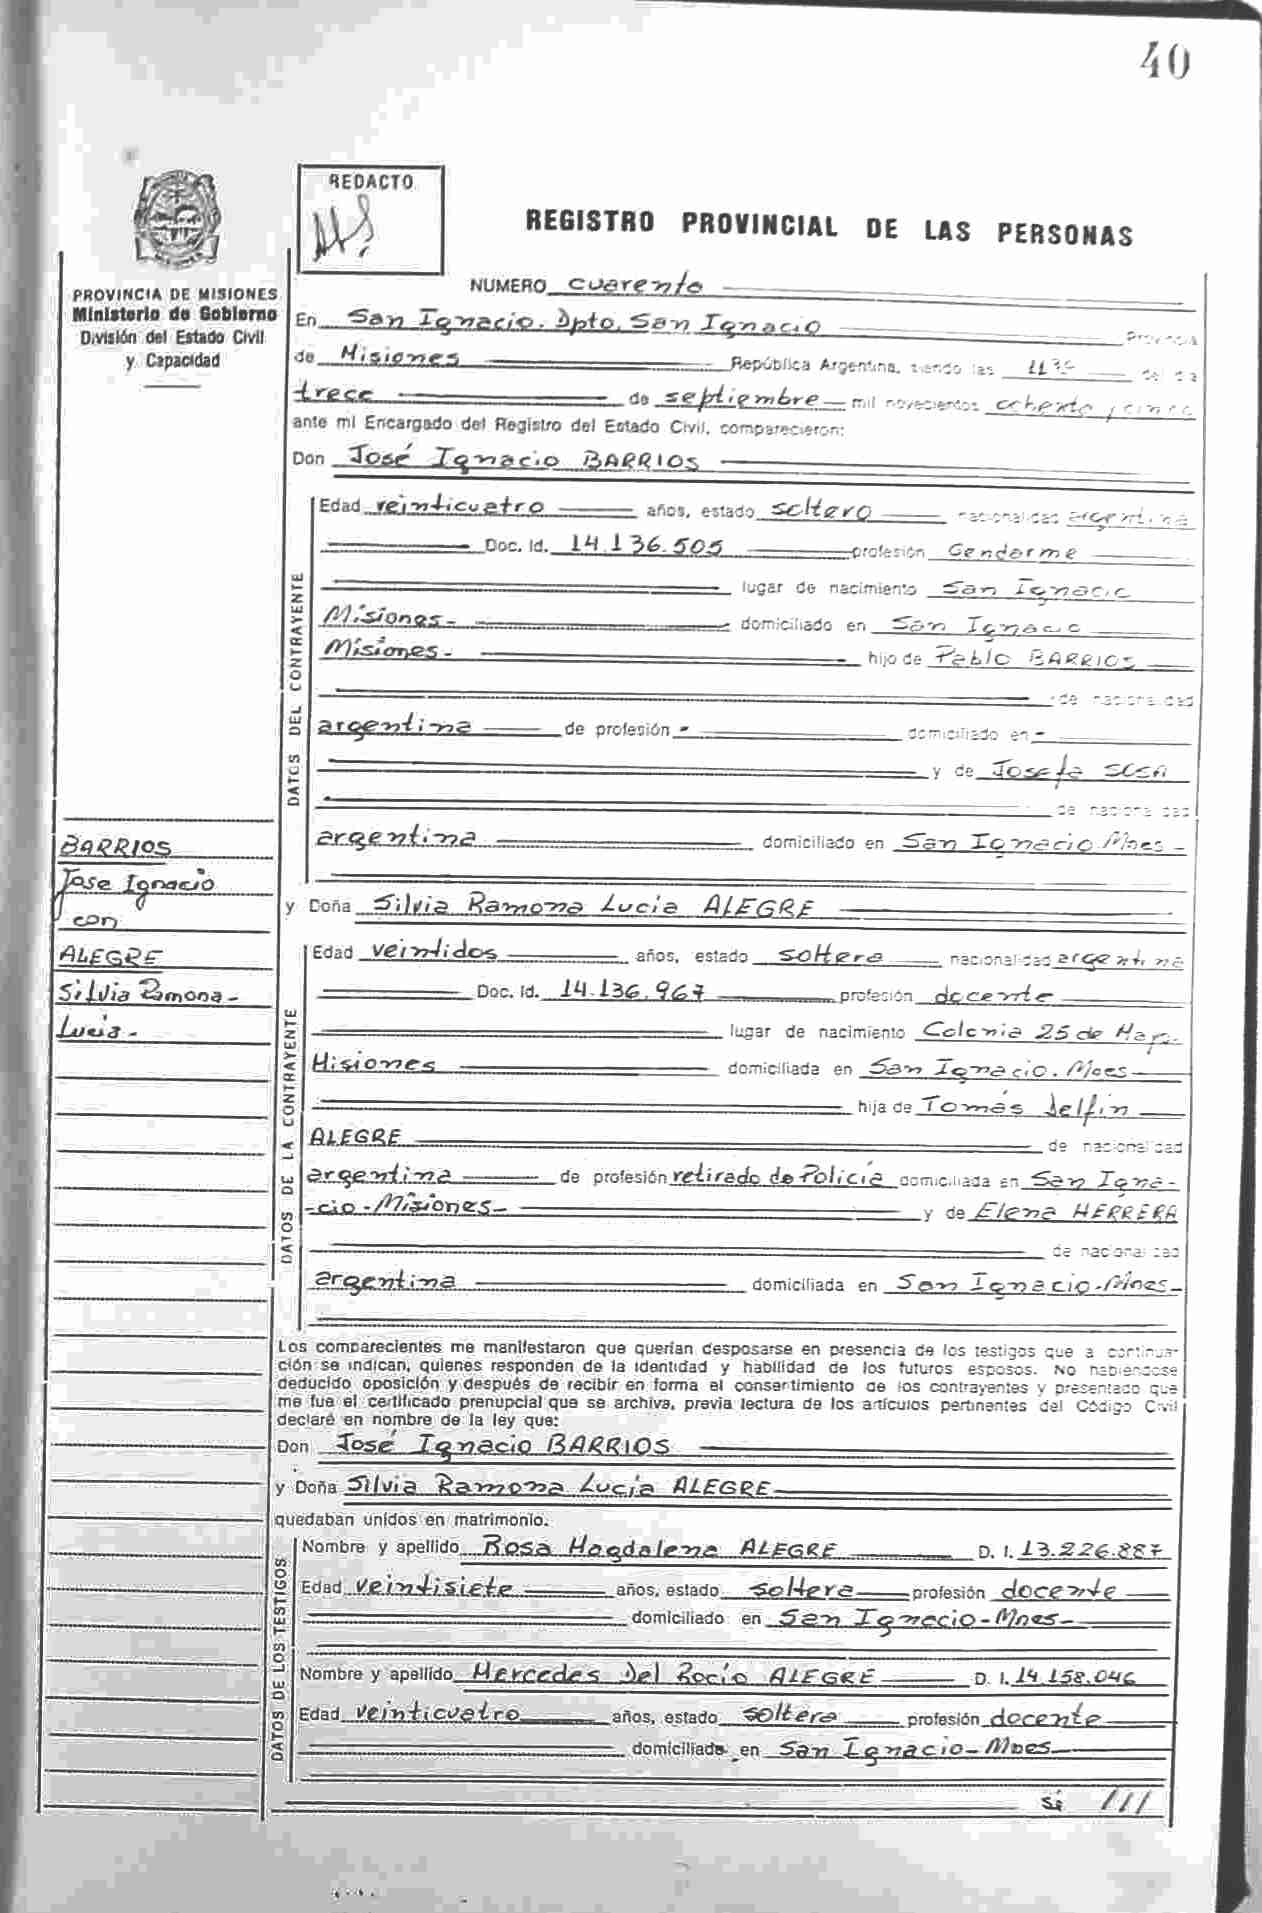 40
REDACTO
REGISTRO PROVINCIAL DE LAS PERSONAS
PROVINCIA DE MISIONES
Ministerio de Gobierno
División del Estado Civil
y Capacidad
NUMERO cuarenta
En San Ignacio. Dpto. San Ignacio Provincia
de Misiones República Argentina, siendo las 11³⁰ del día
trece de septiembre mil novecientos ochenta y cinco
ante mí Encargado del Registro del Estado Civil, comparecieron:
Don José Ignacio BARRIOS
DATOS DEL CONTRAYENTE
Edad veinticuatro años, estado soltero nacionalidad argentina
Doc. Id. 14.136.505 profesión Gendarme
lugar de nacimiento San Ignacio
Misiones- domiciliado en San Ignacio
Misiones- hijo de Pablo BARRIOS
de nacionalidad
argentina de profesión - domiciliado en -
y de Josefa SOSA
de nacionalidad
argentina domiciliado en San Ignacio Mnes-
BARRIOS
Jose Ignacio
con
ALEGRE
Silvia Ramona-
Lucia-
y Doña Silvia Ramona Lucia ALEGRE
DATOS DE LA CONTRAYENTE
Edad veintidos años, estado soltera nacionalidad argentina
Doc. Id. 14.136.967 profesión docente
lugar de nacimiento Colonia 25 de Mayo-
Misiones domiciliada en San Ignacio. Mnes-
hija de Tomás Delfin
ALEGRE de nacionalidad
argentina de profesión retirado de Policía domiciliada en San Igna-
-cio-Misiones- y de Elena HERRERA
de nacionalidad
argentina domiciliada en San Ignacio-Mnes-
Los comparecientes me manifestaron que querían desposarse en presencia de los testigos que a continua-
ción se indican, quienes responden de la identidad y habilidad de los futuros esposos. No habiéndose
deducido oposición y después de recibir en forma el consertimiento de los contrayentes y presentado que
me fue el certificado prenupcial que se archiva, previa lectura de los artículos pertinentes del Código Civil
declaré en nombre de la ley que:
Don José Ignacio BARRIOS
y Doña Silvia Ramona Lucía ALEGRE
quedaban unidos en matrimonio.
DATOS DE LOS TESTIGOS
Nombre y apellido Rosa Magdalena ALEGRE D. I. 13.226.887
Edad veintisiete años, estado soltera profesión docente
domiciliado en San Ignacio-Mnes-
Nombre y apellido Mercedes Del Rocío ALEGRE D. I. 14.158.046
Edad veinticuatro años, estado soltera profesión docente
domiciliado en San Ignacio-Mnes-
Si ///